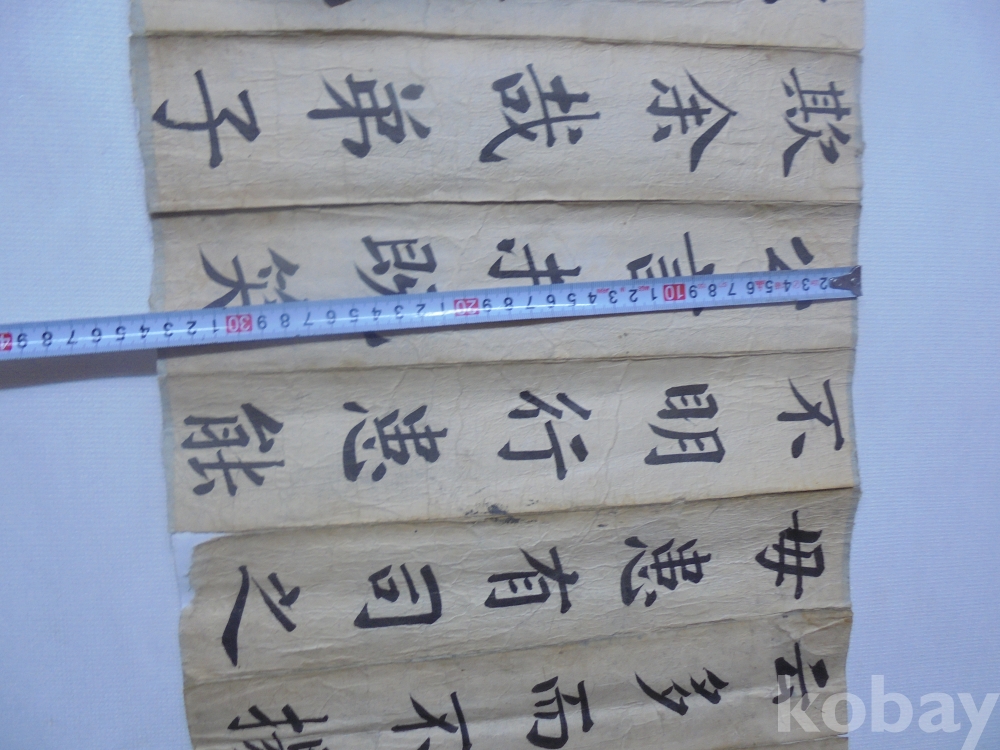 云多而不揚
毋患有司之
不明行患能
言
笑
欺余哉弟子
2 3 4 5 6 7 8 9 10 1 2 3 4 5 6 7 8 9 20 1 2
7 8 9 30 1 2 3 4 5 6 7 8 9
kobay